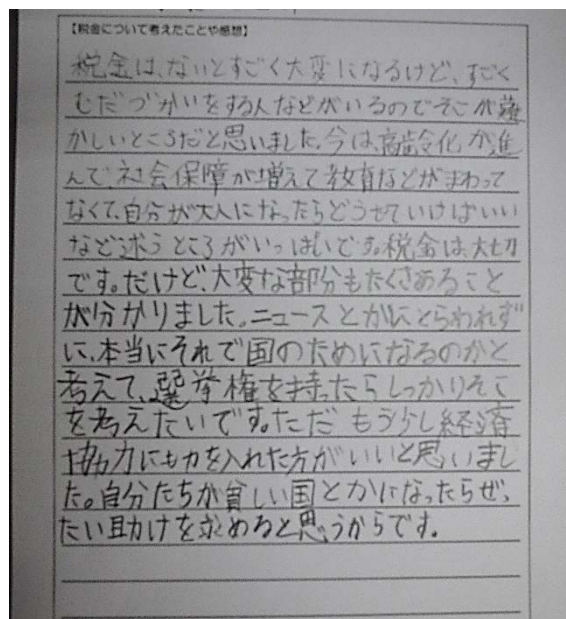 【税金について考えたことや感想】
税金は、ないとすごく大変になるけど、すごく
むだづかいをする人などがいるのでそこが難
かしいところだと思いました。今は、高齢化が進
んで、社会保障が増えて教育などがまわって
なくて、自分が大人になったらどうせていけばいい
など迷うところがいっぱいです。税金は、大切
です。だけど、大変な部分もたくさあること
が分かりました。ニュースとかにとらわれず
に、本当にそれで国のためになるのかと
考えて、選挙権を持ったらしっかりそこ
を考えたいです。ただもう少し経済
協力にも力を入れた方がいいと思いまし
た。自分たちが貧しい国とかになったらぜっ
たい助けを求めると思うからです。